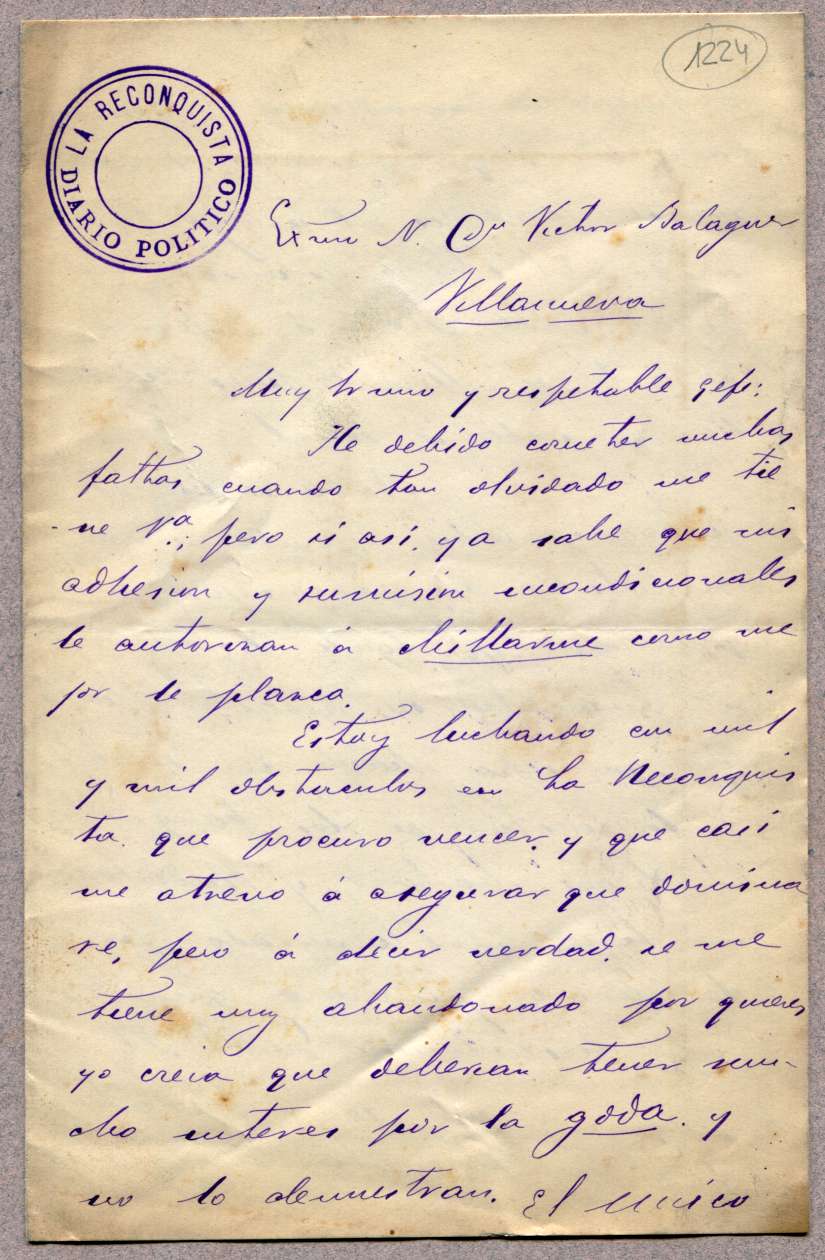 1224
LA RECONQUISTA
DIARIO POLITICO
Victor Balaguer
Villanueva
Muy Sr mio y respetable gefe:
He debido cometer muchas
faltas cuando tan olvidado me tie
-ne Vª; pero si así, ya sabe que mis
adhesion y sumision incondicionales
le autorizan á chillarme como me
jor le plazca.
Estoy luchando con mil
y mil obstaculos en La Reconquis
ta que procuro vencer, y que casi
me atrevo á asegurar que domina
re, pero á decir verdad, se me
tiene muy abandonado por quienes
yo creia que deberian tener mu-
cho interes por la goda y
no lo demuestran. El unico